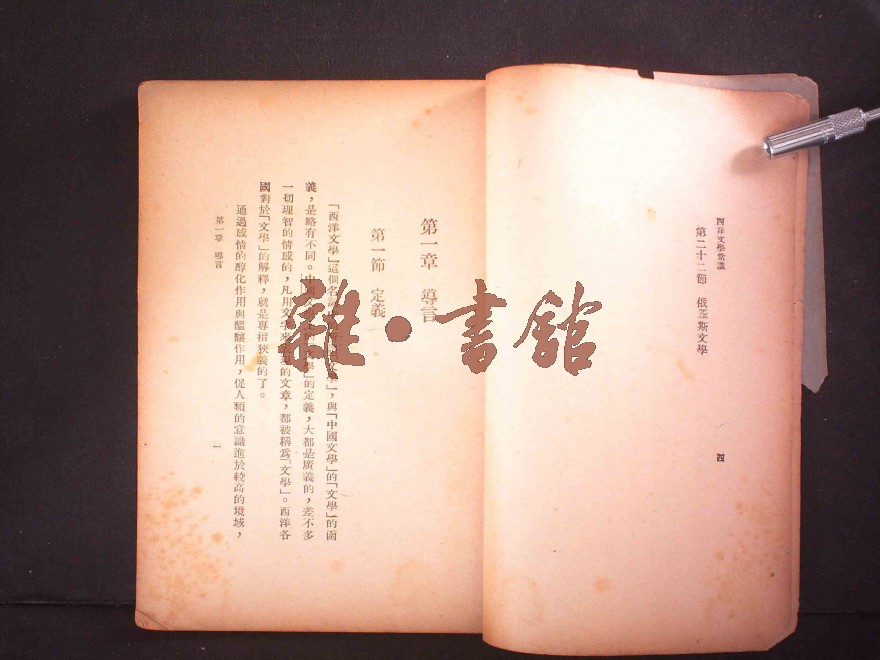 西洋文學常識
第二十二節 俄羅斯文學
四
第一章 導言
第一節 定義
「西洋文學」這個名詞 」,與「中國文學」的「文學」的函
義,是略有不同。中國 學」的定義,大都是廣義的,差不多
一切理智的情感的,凡用文字來 的文章,都被稱為「文學」。西洋各
國對於「文學」的解釋,就是專指狹義的了。
通過感情的醇化作用與醞釀作用,促人類的意識進於較高的境域,
第一章 導言
一
雜·書館